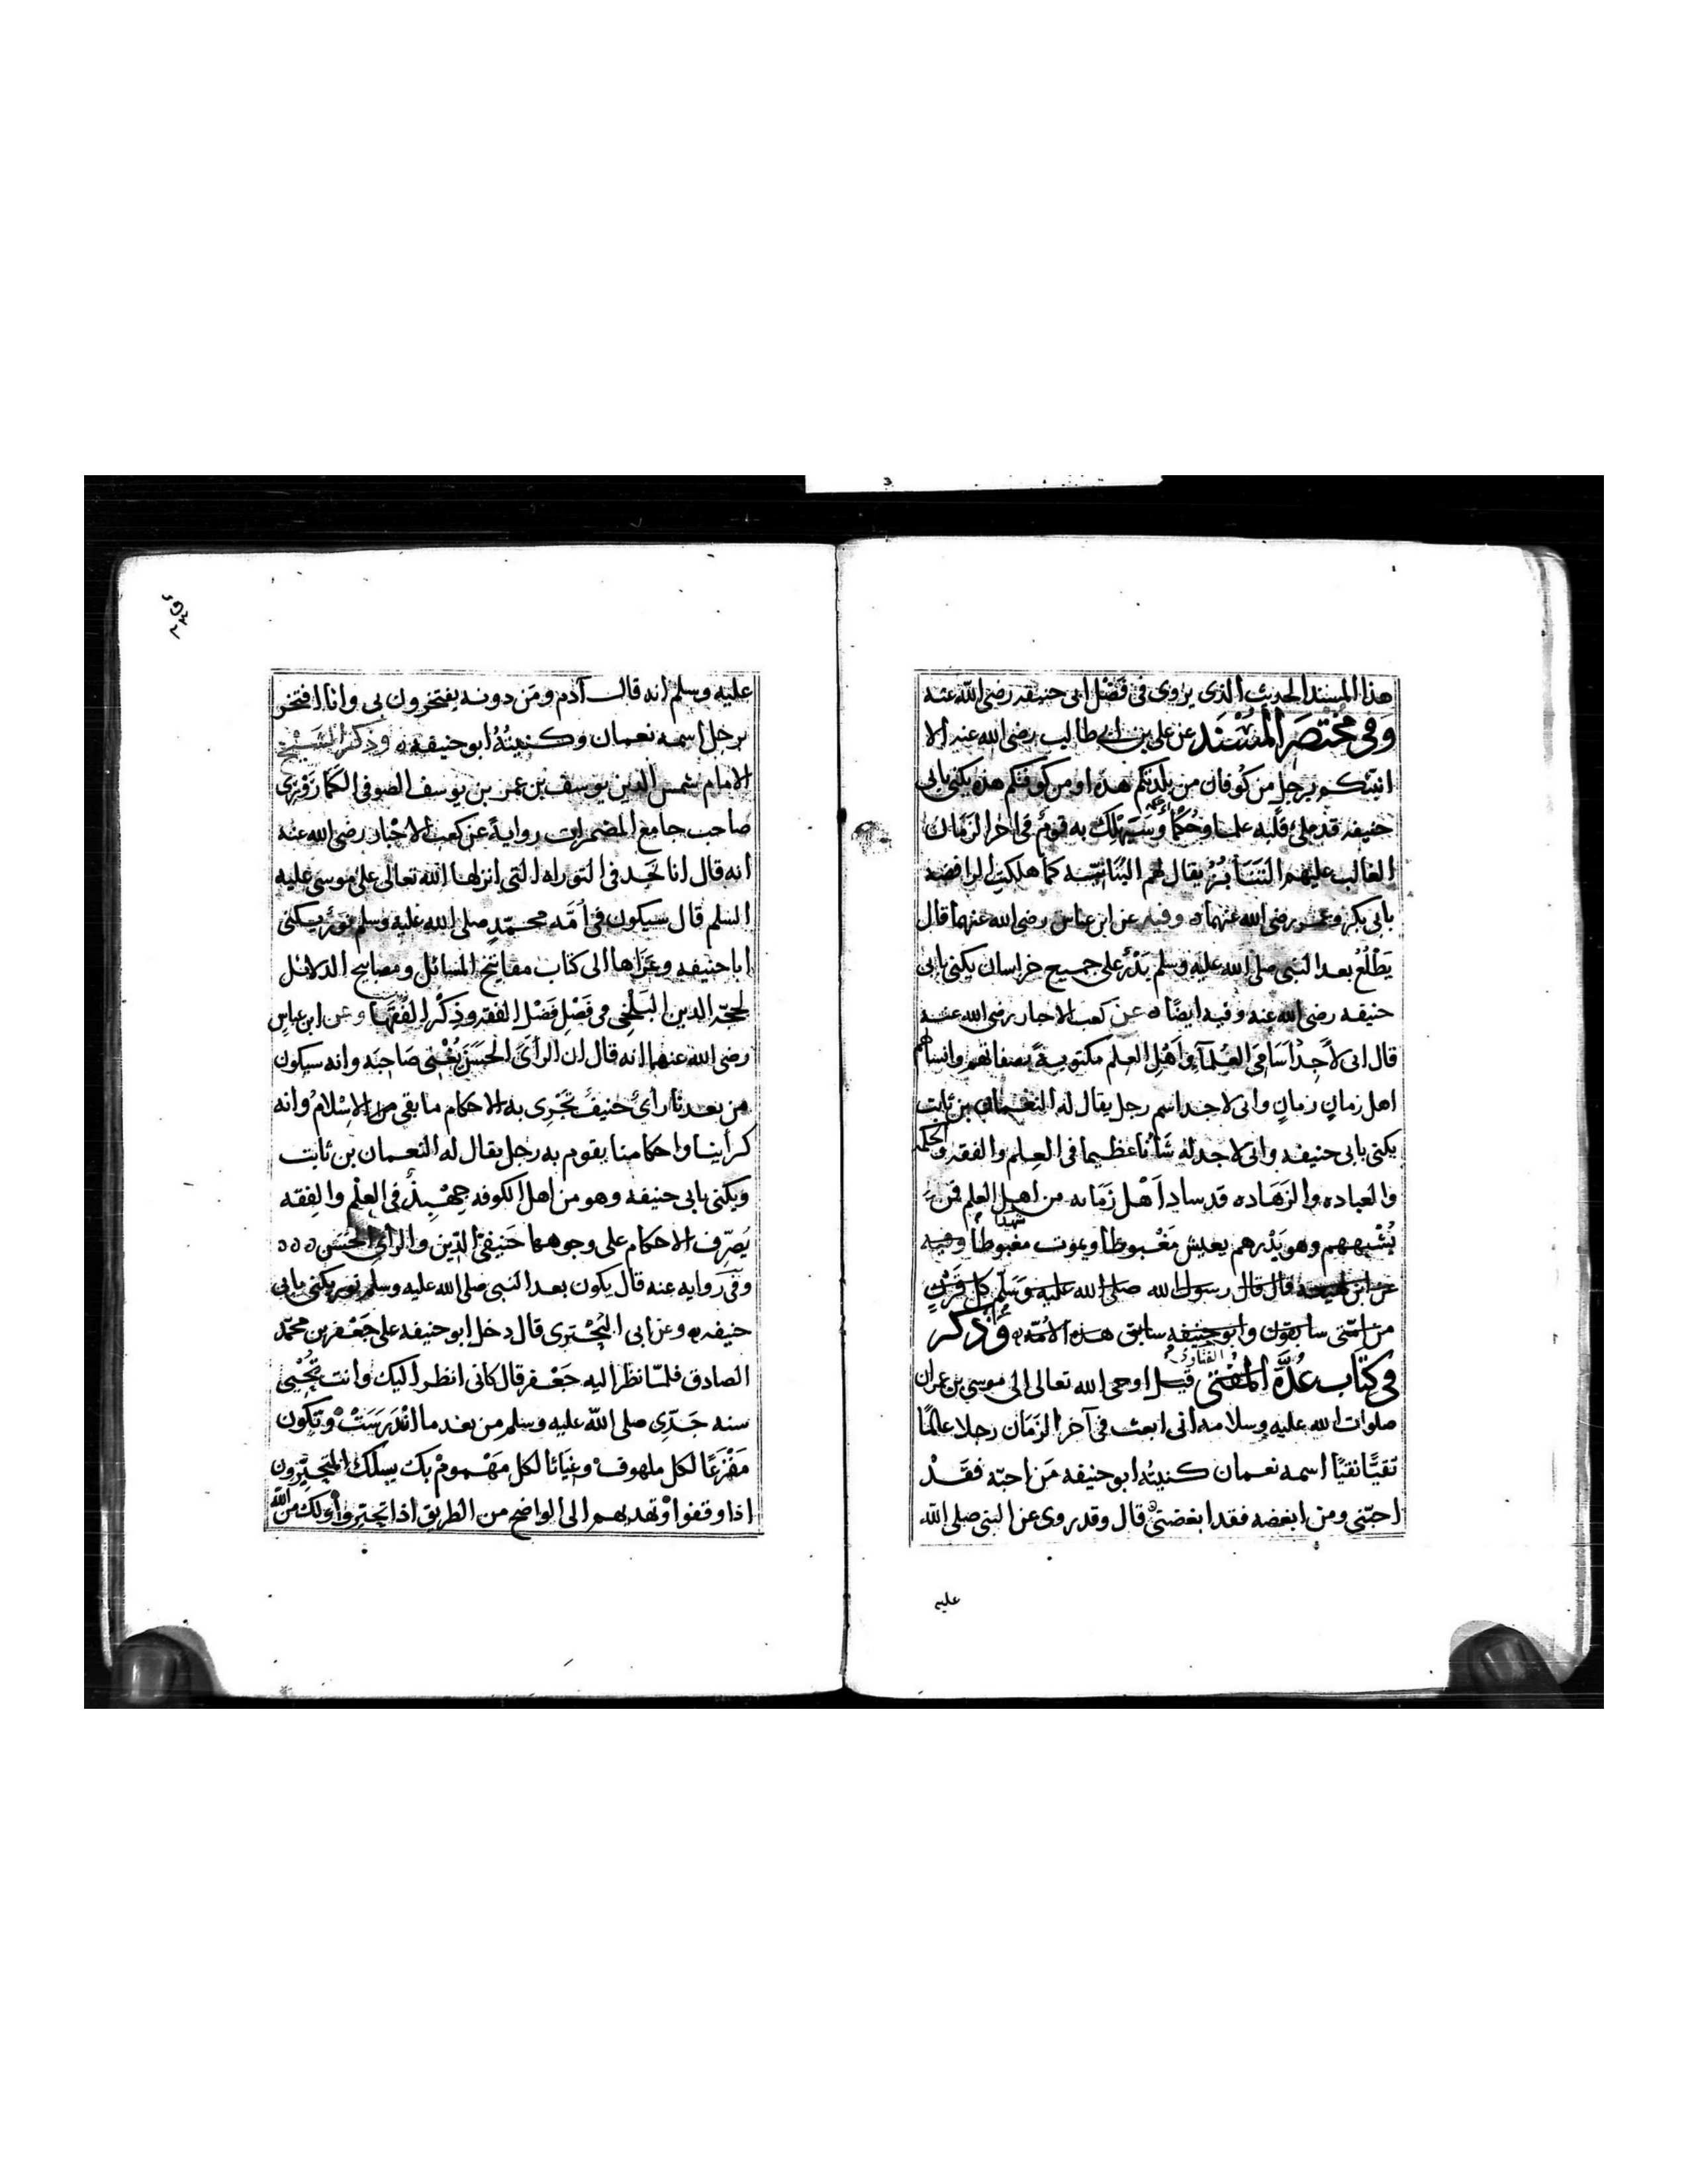 هذا المسند الحديث الذى يروى فى فضل ابى حنيفه رضى الله عنه
وَفى مختصَر المُسْنَد عن على بن ابى طالب رضى الله عنه الا
انبئكم برجل من كوفان من بلدتكم هذه او من كوفتكم هذه يكنى بابى
حنيفه قد ملئ قلبه علما وحُكمًا وسَيهلك به قوم فى اخر الزمان
الغالب عليهم التنَابُز يقال لهم البُنَانيّه كما هلكت الرافضه
بابى بكر وعمر رضى الله عنهما ه وفيه عن ابن عباس رضى الله عنهما قال
يَطْلُعُ بعد النبى صلى الله عليه وسلم بَدْرٌ على جميع خراسان يكنى بابى
حنيفه رضى الله عنه وفيه ايضًا ه عن كعب الاحبار رضى الله عنه
قال انى لاَجِدُ اسَامىَ العُلمآء واَهْل العلم مكتوبةً بصفاتهم وانسابهم
اهل زمانٍ زمانٍ وانى لاجد اسم رجل يقال له النعمان بن ثابت
يكنى بابى حنيفه وانى لاجد له شَأنًا عظيما فى العِلم والفقه والحكمه
والعباده والزَهَاده قد ساد اَهْل زمَانه من اهل العلم فمن
يُشْبههم وهو بَدْرهم يعيش مَغْبوطًا ويموت شهيدا مغبوطًا وفيه
عن ابن لهيعه قال قال رسول الله صلى الله عليه وَسَلّم كل قَرْنٍ
من امّتى سابقون وابو حنيفه سابق هذه الامّة ه وَذُكر
فى كتَاب عُدَّة المُفتى الفتاوى قيل اوحى الله تعالى الى موسى بن عمران
صلوات الله عليه وسلامه انى ابعث فى آخر الزَمَان رجلا عالمًا
تقيًّا نقيًّا اسمه نعمان كنيتُه ابو حنيفه مَن احبّه فقَدْ
احبّنى ومن ابغضه فقد ابغضنى قال وقد روى عن النبى صلى الله
عليه
عليه وسلم انه قال آدم ومَن دونه يفتخرون بى وانا افتخر
برجل اسمه نعمان وكنيتُهُ ابو حنيفه ه وذكر الشَيْخ
الامام شمس الدين يوسف بن عمر بن يوسف الصوفى الكمازَوْرى
صاحب جامع المضمرات روايةً عن كعب الاحْبار رضى الله عنه
انه قال انا نَجد فى التوراه التى انزلها الله تعالى على موسى عليه
السلم قال سيكون فى اُمّه محمّدٍ صلى الله عليه وسلم نورٌ يكنى
ابا حنيفه وعَزَاها الى كتاب مفاتيح المسائل ومصابيح الدلائل
لحجّه الدين البَلْخى فى فَصْلِ فَضْل الفقه وذِكْر الفُقَهَا وعن ابن عباسٍ
رضى الله عنهما انه قال ان الرأىَ الحسَنَ يُغْنِى صَاحبَه وانه سيكون
من بعدنا رأىُ حنيفَ تجْرِى به الاحكام ما بقى من الاِسْلامُ وانه
كرأينا واحكامنا يقوم به رجل يقال له النعمان بن ثابت
ويكنى بابى حنيفه وهو من اهل الكوفه جِهْبِذٌ فى العِلْم والفِقه
يَصرّف الاحكام على وجوهها حَنيفىّ الدّين والرأى الحُسَن ه ه ه
وفى روايه عنه قال يكون بعد النبى صلى الله عليه وسلم نور يكنى بابى
حنيفه ه وعن ابى البُحْتِرى قال دخل ابو حنيفه على جَعْفر بن محمّد
الصادق فلمّا نظر اليه جَعْفر قال كانى انظر اليك وانت تُحْيِى
سنه جَدّى صلى الله عليه وسلم من بعد ما انْدَرَسَتْ وتكون
مَفْزَعًا لكل ملهوفْ وغيَاثا لكل مَهْمومْ بك يسلك المتحيّرون
اذا وقفوا وتهديهم الى الواضح من الطريق اذا تحيّروا ولك من الله